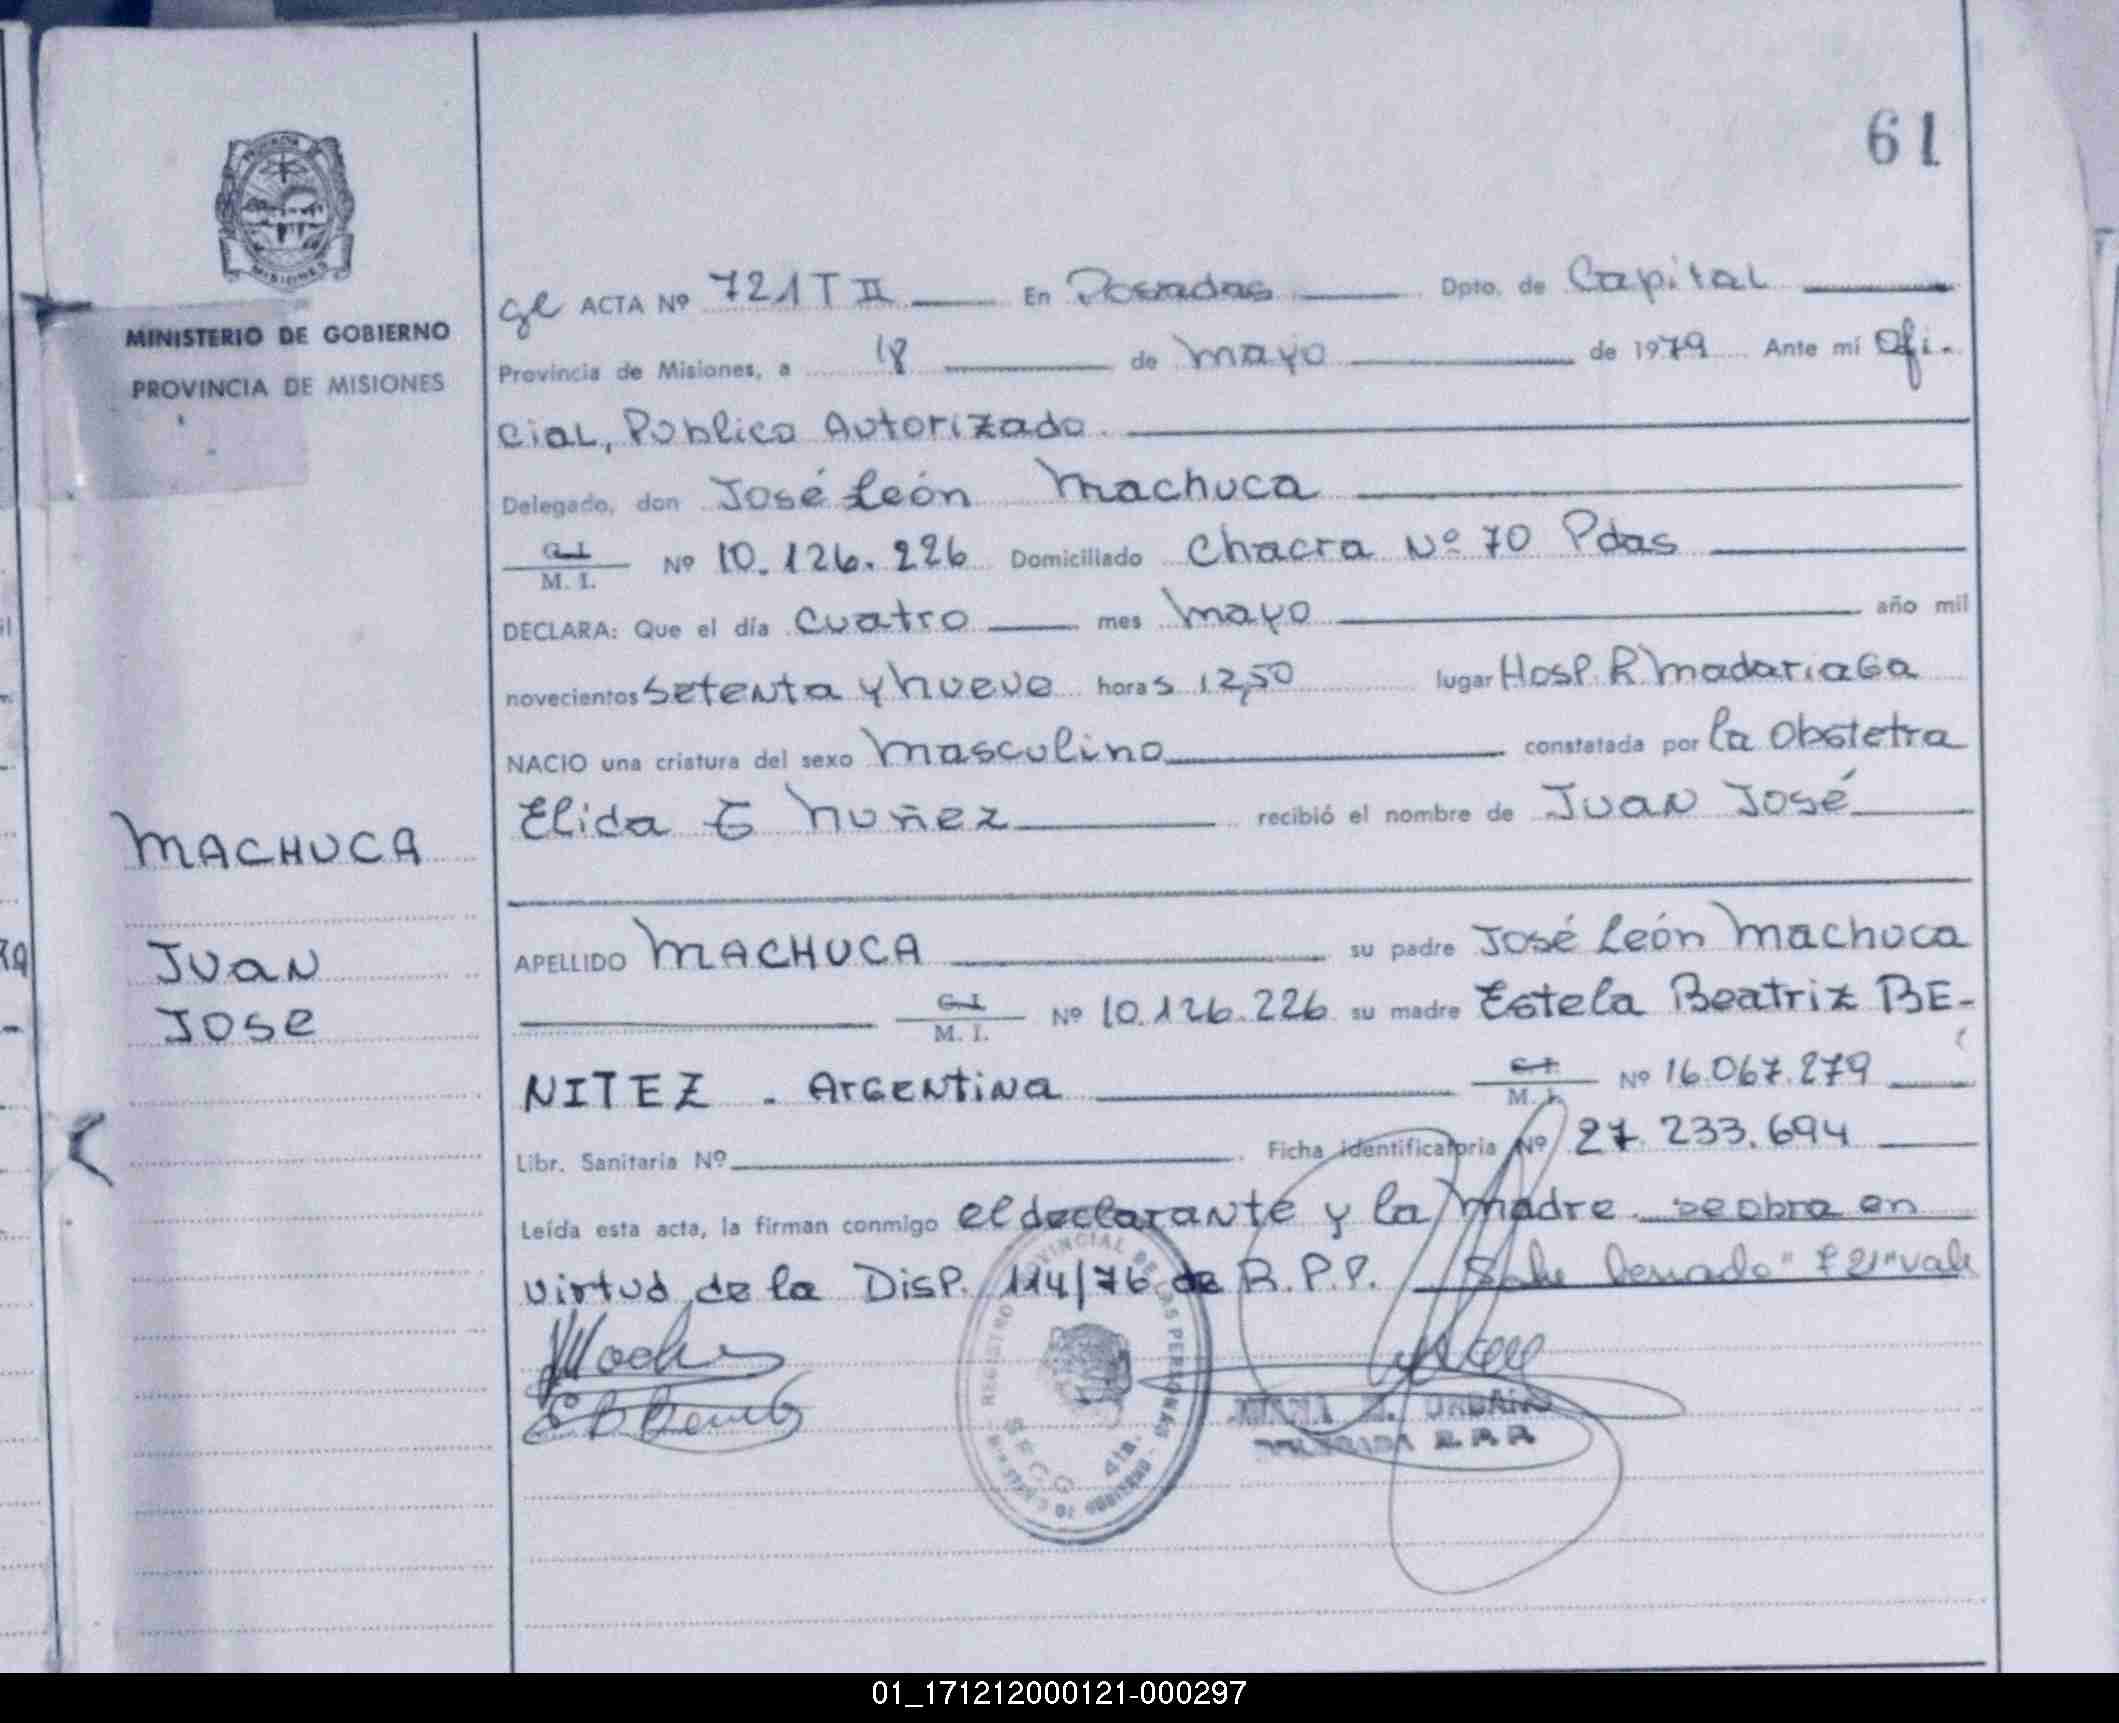 61
PROVINCIA DE
MISIONES
MINISTERIO DE GOBIERNO
PROVINCIA DE MISIONES
MACHUCA
JUAN
JOSE
ACTA Nº 721 T II En Posadas Dpto. de Capital
Provincia de Misiones, a 18 de mayo de 1979 Ante mí Ofi-
cial, Publico Autorizado.
Delegado, don José León Machuca
C.I. M. I. Nº 10.126.226 Domiciliado Chacra Nº 70 Pdas
DECLARA: Que el día cuatro mes mayo año mil
novecientos setenta y nueve horas 12,50 lugar Hosp. R Madariaga
NACIO una criatura del sexo masculino constatada por la Obstetra
Elida E Nuñez recibió el nombre de Juan José
APELLIDO MACHUCA su padre José León Machuca
C.I. M. I. Nº 10.126.226 su madre Estela Beatriz BE-
NITEZ . Argentina C.I. M. I. Nº 16.067.279
Libr. Sanitaria Nº Ficha identificatoria Nº 27.233.694
Leída esta acta, la firman conmigo el declarante y la madre. se obra en
virtud de la Disp. 114/76 de R.P.P. "721" vale
REGISTRO PROVINCIAL DE LAS PERSONAS
S.R.C.G. 4ta.
URBANO